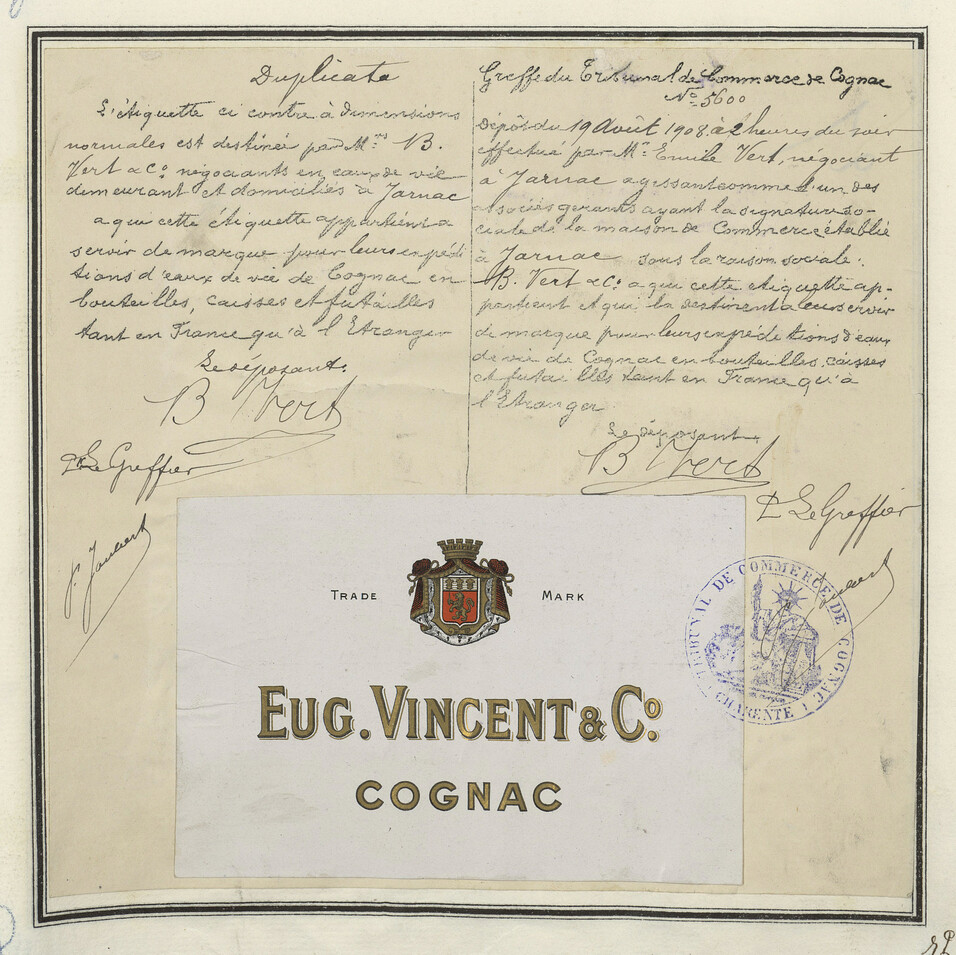 Duplicata
L'étiquette ci contre à dimensions
normales est destinée par M.rs B.
Vert & Co. négociants en eaux de vie
demeurant et domiciliés à Jarnac
a qui cette étiquette appartient a
servir de marque pour leurs expédi
tions d'eaux de vie de Cognac en
bouteilles, caisses et futailles
tant en France qu'à l'Etranger
Le déposant.
B Vert
Pr Le Greffier
Greffe du Tribunal de Commerce de Cognac
No. 5600
Dépôt du 19 Août 1908, à 2 heures du soir
effectué par Mr. Emile Vert, négociant
à Jarnac agissant comme l'un des
associés gerants ayant la signature so-
ciale de la maison de Commerce établie
à Jarnac sous la raison sociale:
B. Vert & Co. a qui cette étiquette ap-
partient et qui la destinent a leur servir
de marque pour leurs expéditions d'eaux
de vie de Cognac en bouteilles, caisses
et futailles tant en France qu'à
l'Etranger
Le déposant
B Vert
Pr Le Greffier
TRADE MARK
EUG. VINCENT & Co.
COGNAC
TRIBUNAL DE COMMERCE DE COGNAC
CHARENTE